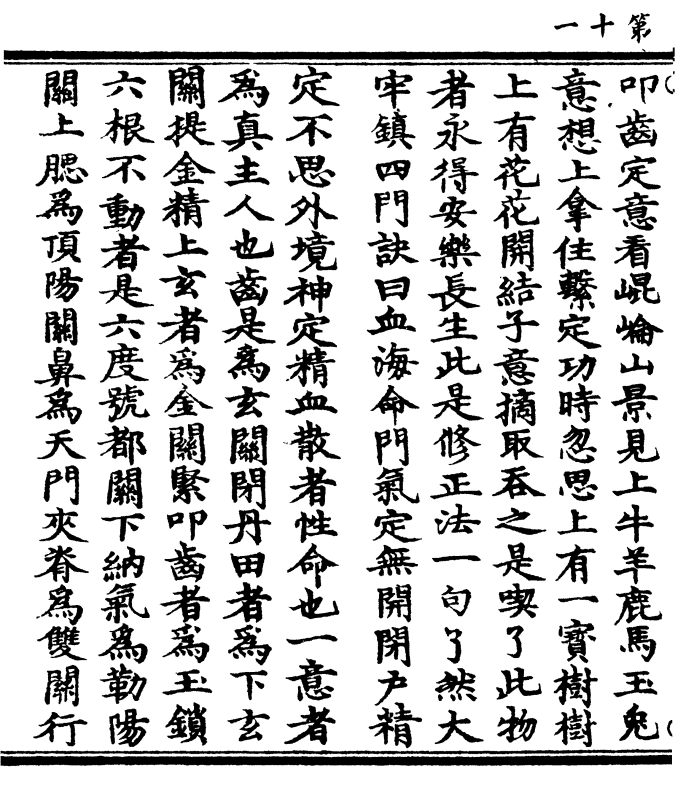 第十一
叩齒定意看崐崘山景見上牛羊鹿馬玉兔
意想上拿住繫定功時忽思上有一寶樹樹
上有花花開結子意摘取吞之是喫了此物
者永得安樂長生此是修正法一句了然大
牢鎮四門訣曰血海命門氣定無開閉戶精
定不思外境神定精血散者性命也一意者
爲真主人也齒是爲玄關閉丹田者爲下玄
關提金精上玄者爲金關緊叩齒者爲玉鎖
六根不動者是六度號都關下納氣爲勒陽
關上腮爲頂陽關鼻爲天門夾脊爲雙關行